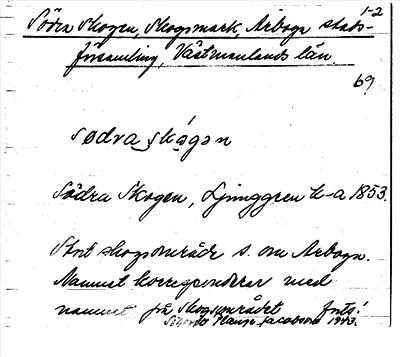 1-2
Södra Skogen, Skogsmark, Arboga stads-
församling, Västmanlands län.
69
sødra skógən
Södra Skogen, Ljunggren k-a 1853.
Stort skogsområde s. om Arboga.
Namnet korresponderar med
namnet på skogsområdet forts!
Jacobson 1943.